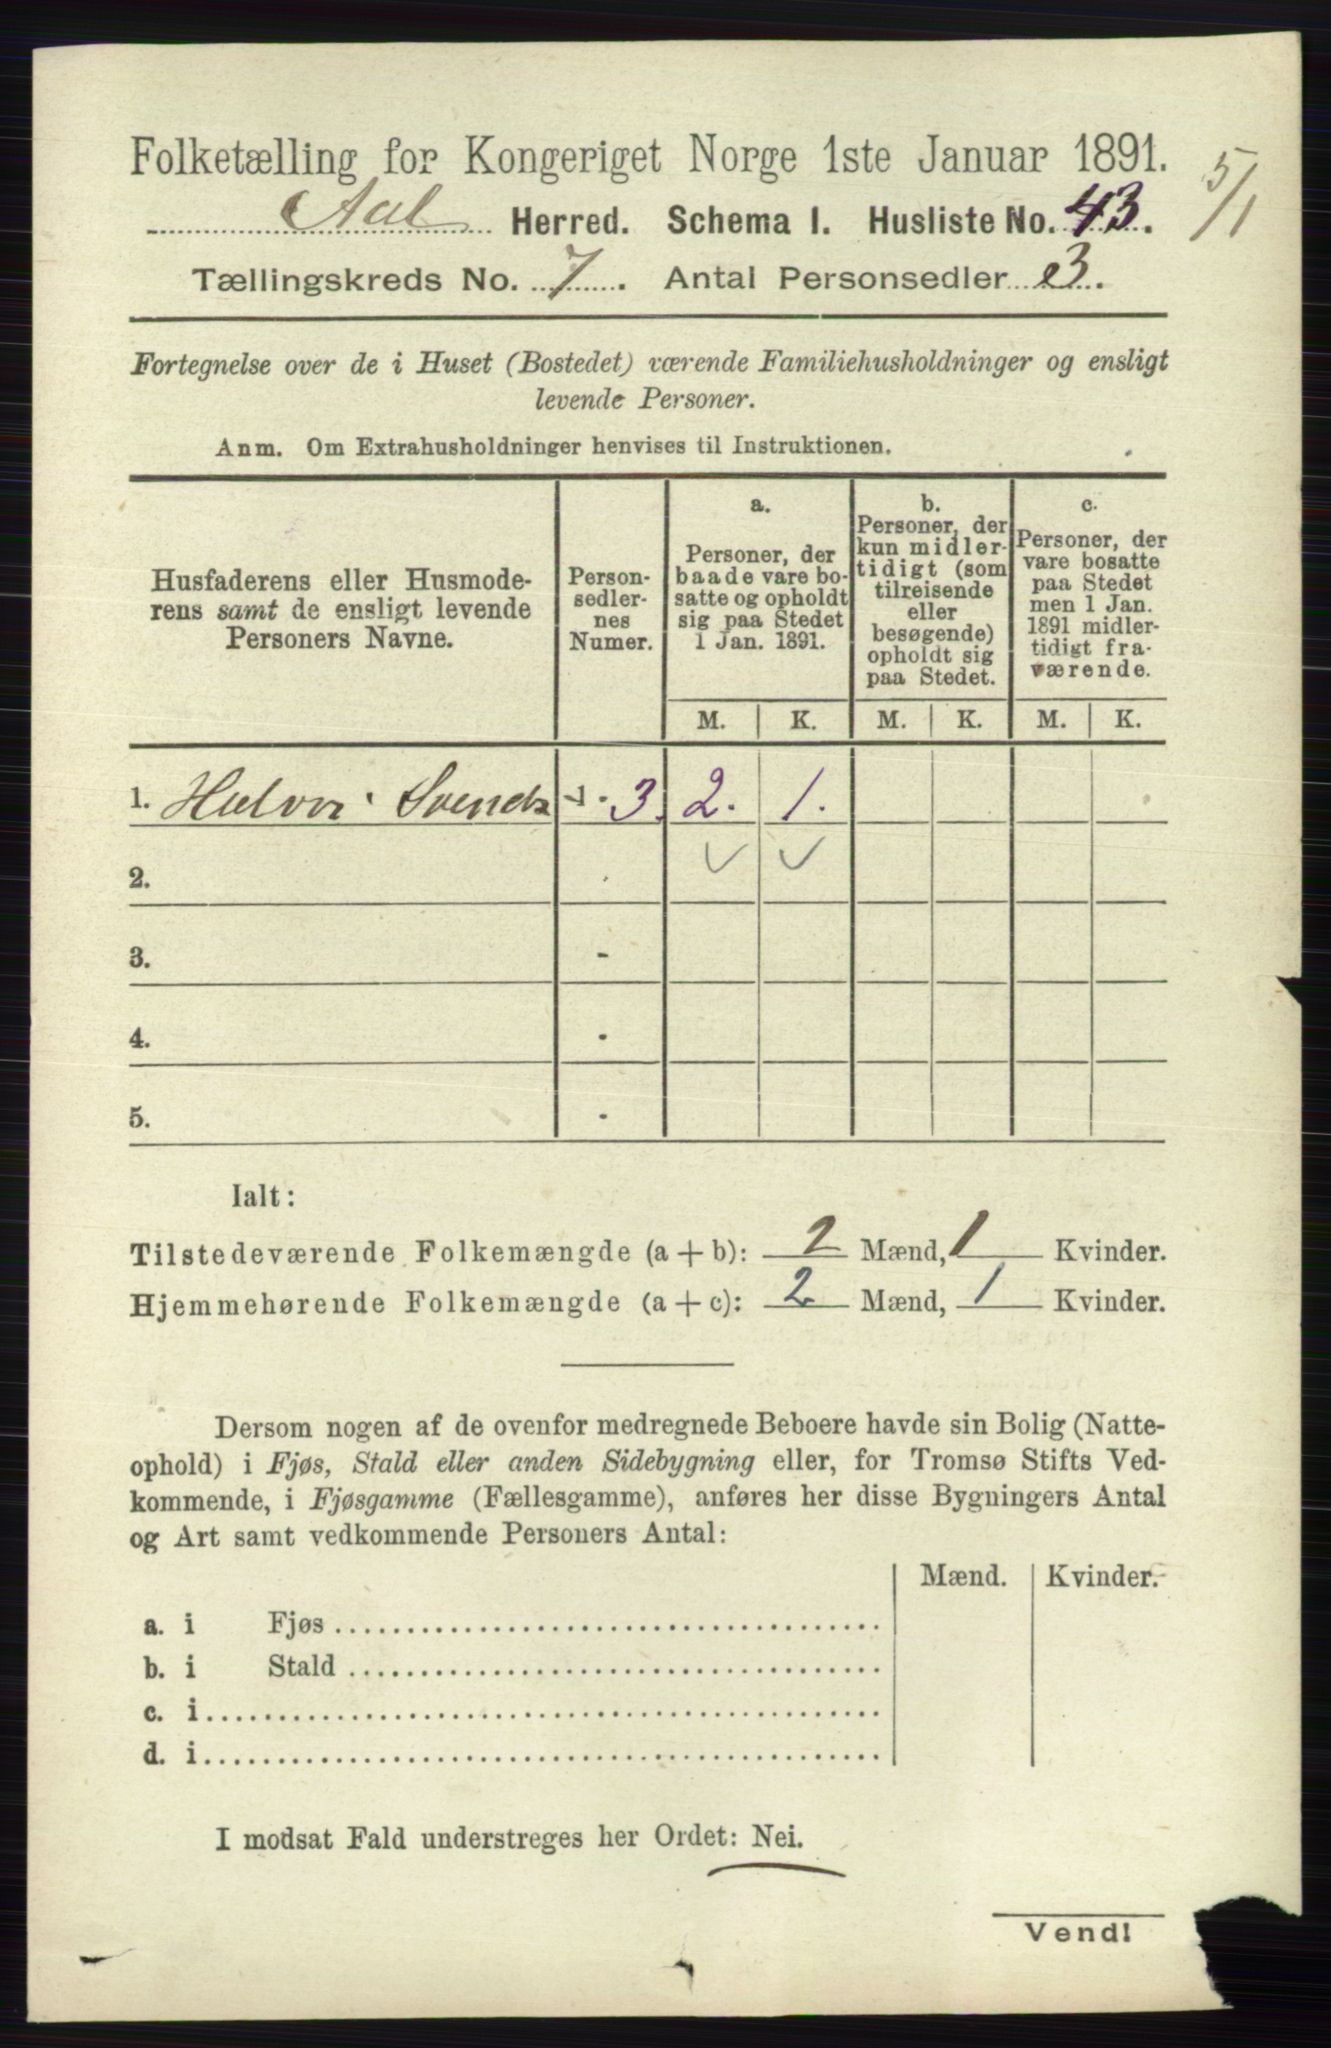 Folketælling for Kongeriget Norge 1ste Januar 1891.
5/1
Aal Herred. Schema I. Husliste No. 43.
Tællingskreds No. 7. Antal Personsedler 3.
Fortegnelse over de i Huset (Bostedet) værende Familiehusholdninger og ensligt
levende Personer.
Anm. Om Extrahusholdninger henvises til Instruktionen.
Husfaderens eller Husmode-
rens samt de ensligt levende
Personers Navne.
Person-
sedler-
nes
Numer.
a.
Personer, der
baade vare bo-
satte og opholdt
sig paa Stedet
1 Jan. 1891.
b.
Personer, der
kun midler-
tidigt (som
tilreisende
eller
besøgende)
opholdt sig
paa Stedet.
c.
Personer, der
vare bosatte
paa Stedet
men 1 Jan.
1891 midler-
tidigt fra-
værende.
M. K. M. K. M. K.
1. Halvor Svends 1 - 3. 2. 1.
2.
3. -
4. -
5. -
Ialt:
Tilstedeværende Folkemængde (a + b): 2 Mænd, 1 Kvinder.
Hjemmehørende Folkemængde (a + c): 2 Mænd, 1 Kvinder.
Dersom nogen af de ovenfor medregnede Beboere havde sin Bolig (Natte-
ophold) i Fjøs, Stald eller anden Sidebygning eller, for Tromsø Stifts Ved-
kommende, i Fjøsgamme (Fællesgamme), anføres her disse Bygningers Antal
og Art samt vedkommende Personers Antal:
Mænd. Kvinder.
a. i Fjøs
b. i Stald
c. i
d. i
I modsat Fald understreges her Ordet: Nei.
Vend!